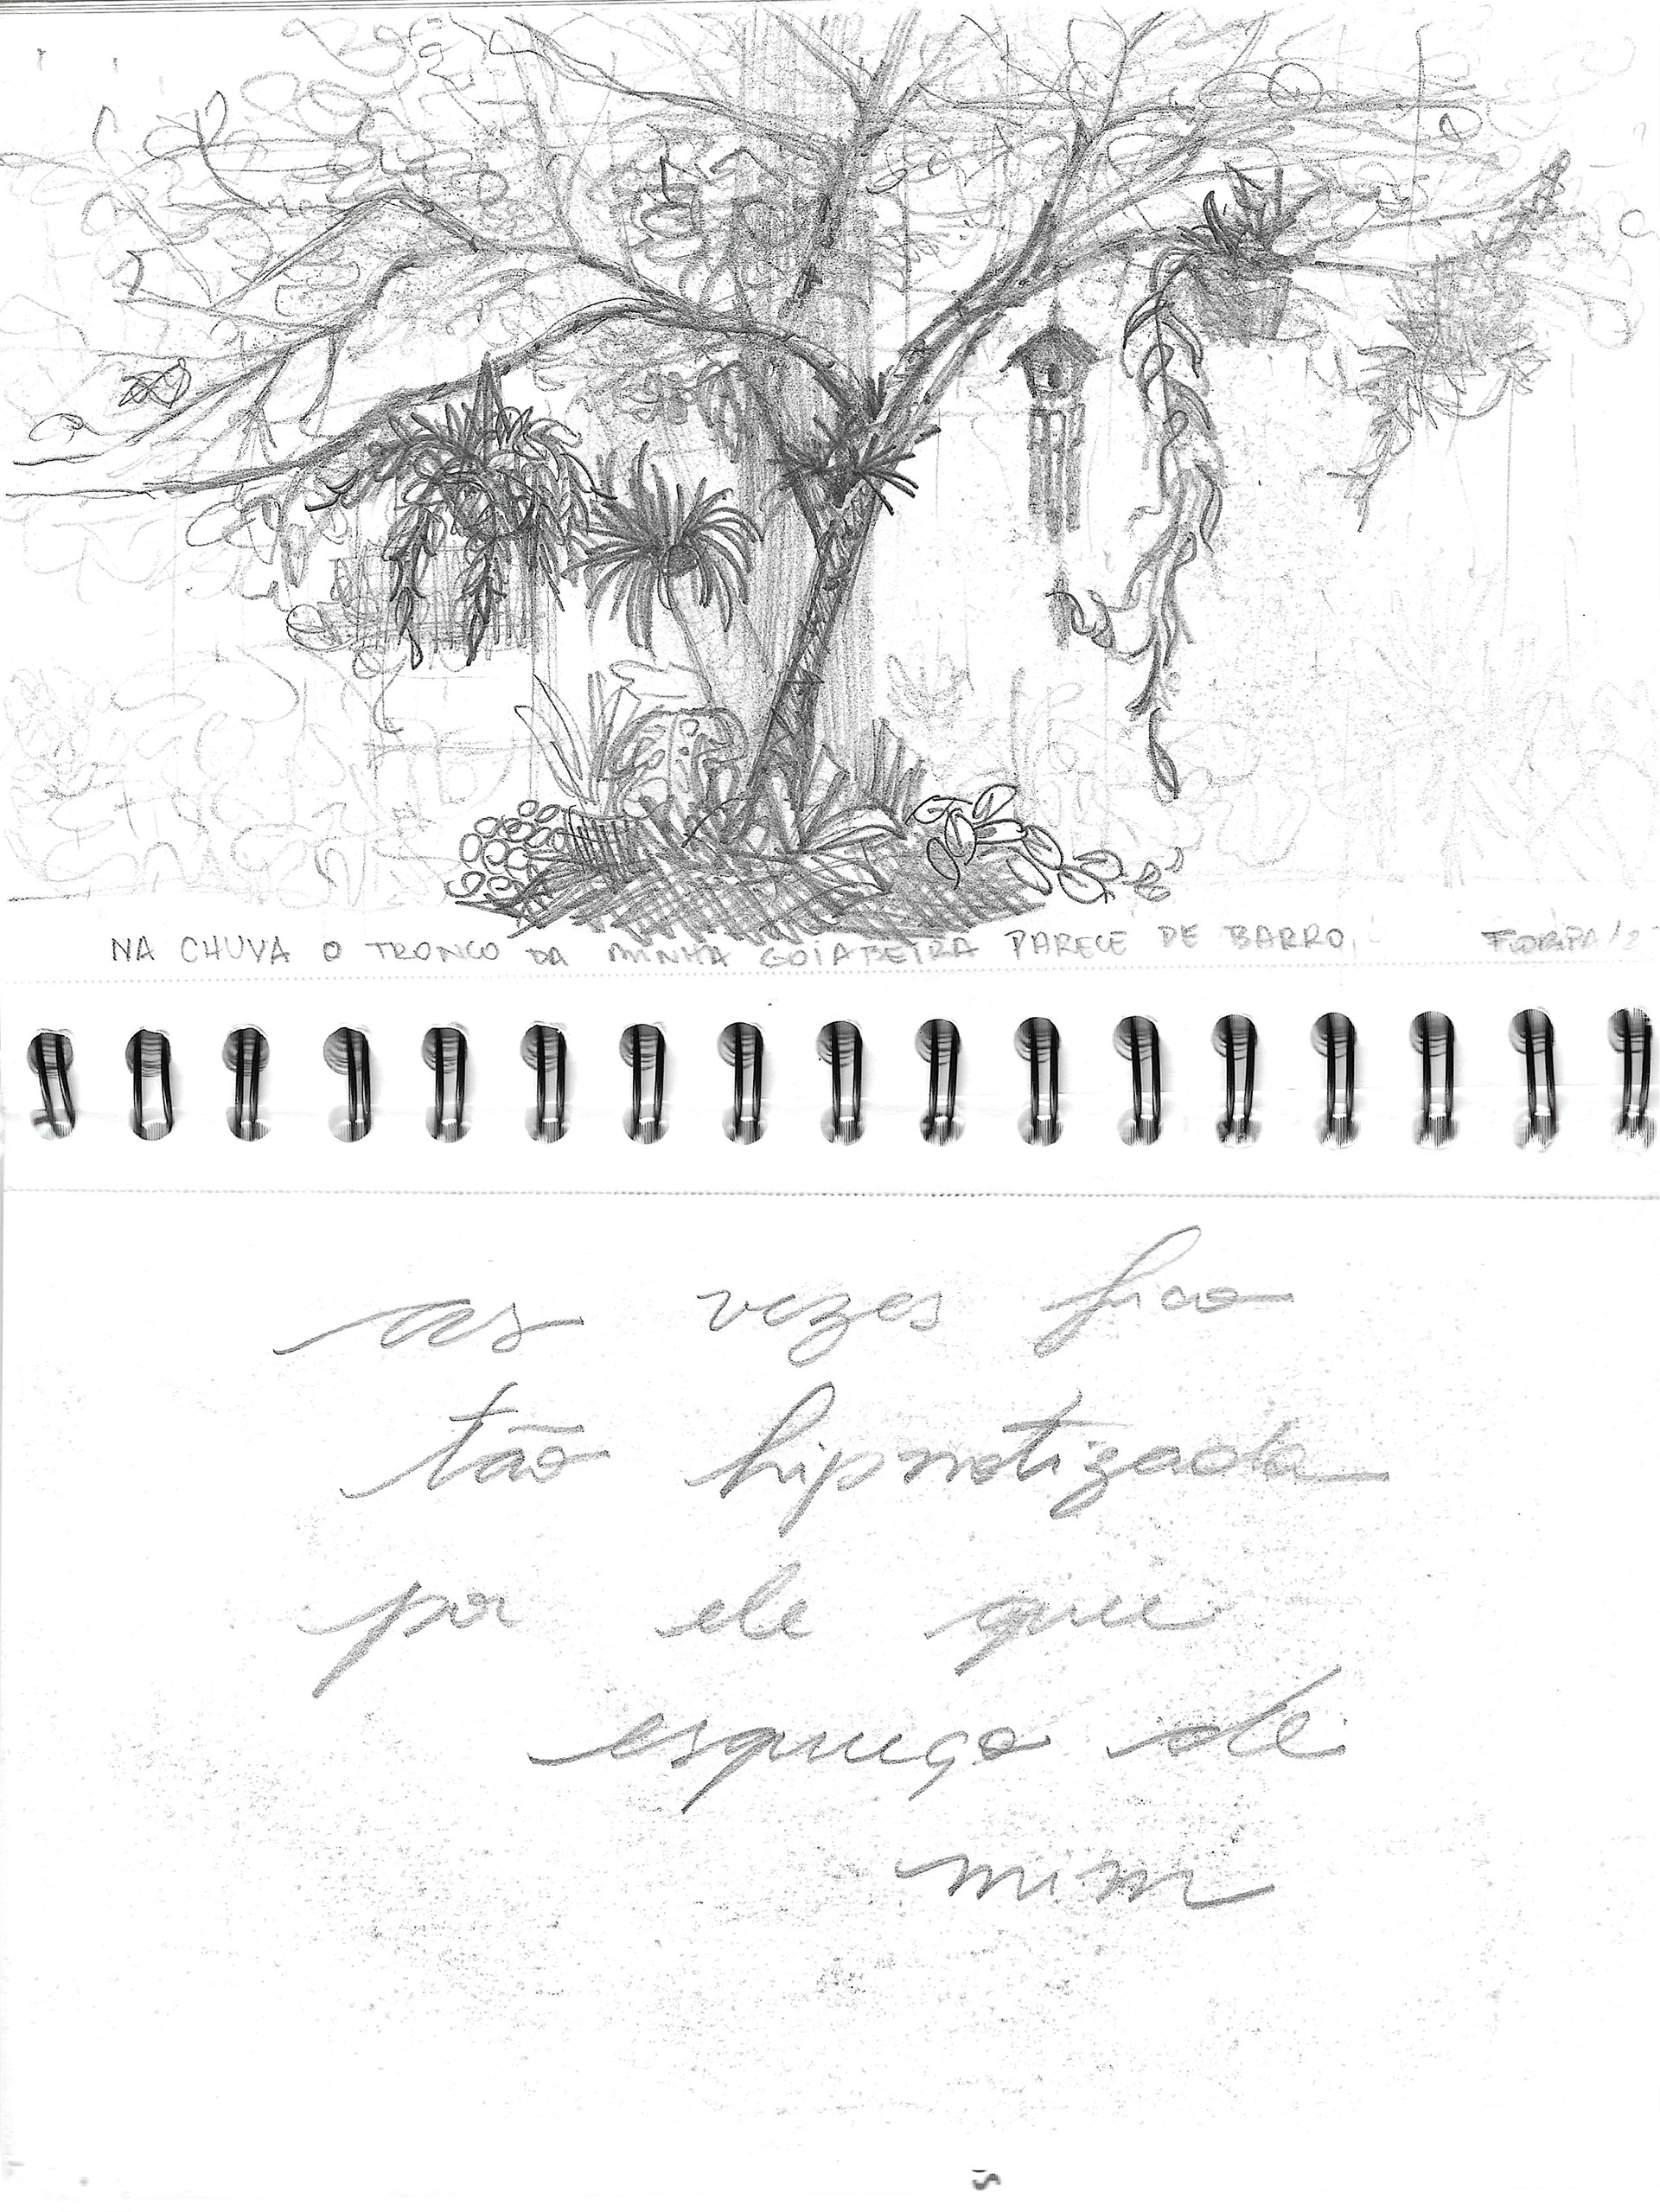 NA CHUVA O TRONCO DA MINHA GOIABEIRA PARECE DE BARRO, FLORIPA/2
as vezes fico
tão hipnotizada
por ele que
esqueço de
mim